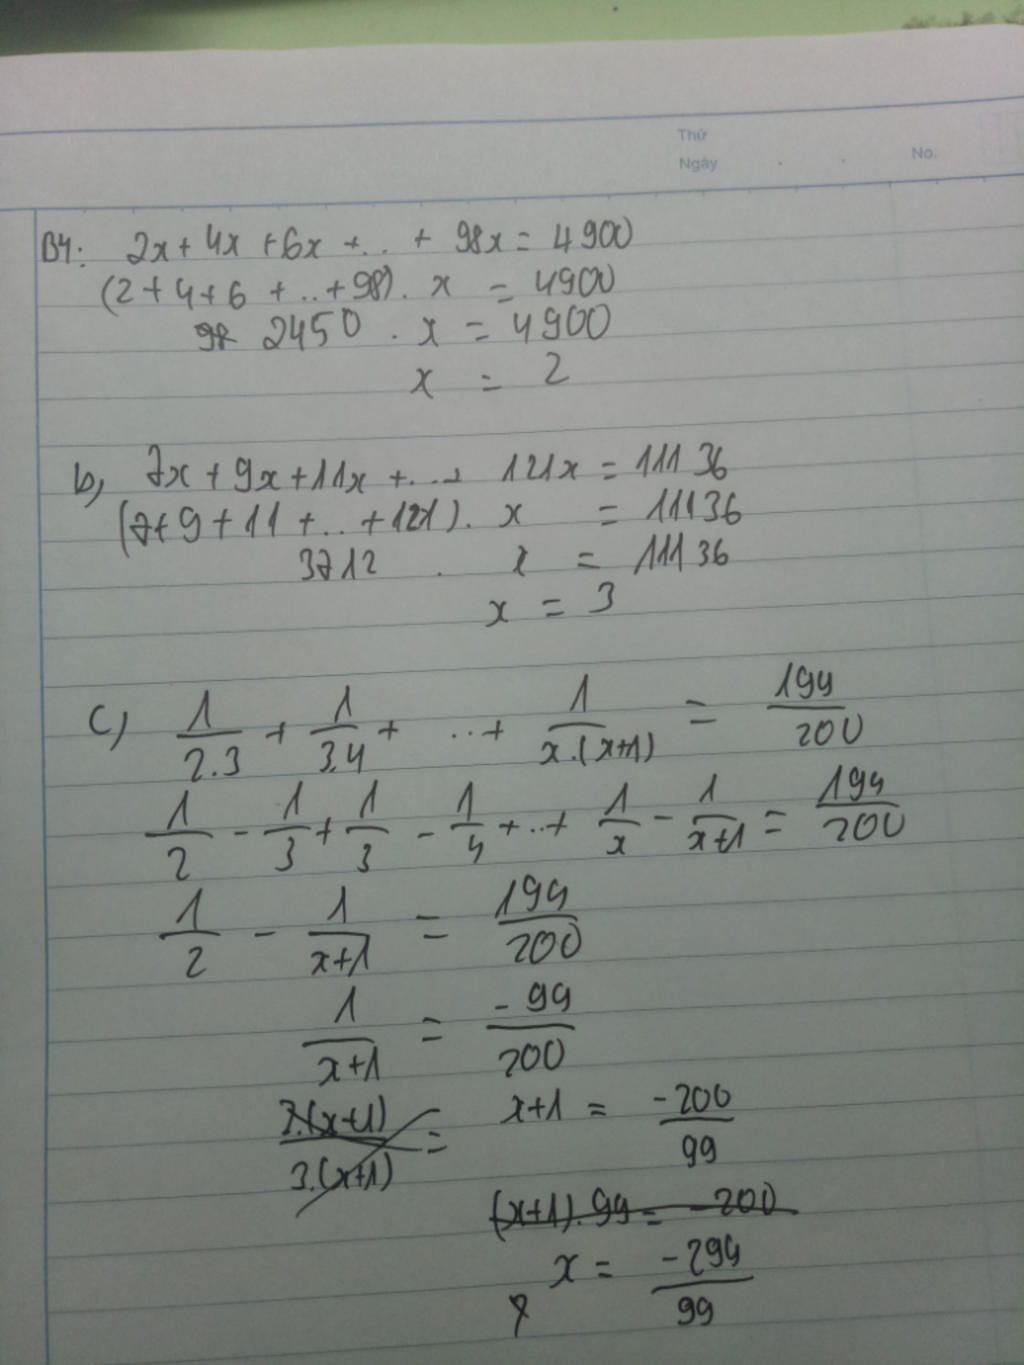 Thứ
Ngày . . No.
B4: 2x + 4x + 6x + .. + 98x = 4900
(2 + 4 + 6 + .. + 98) . x = 4900
98 2450 . x = 4900
x = 2
b, 7x + 9x + 11x + ... + 121x = 11136
(7 + 9 + 11 + .. + 121) . x = 11136
3712 . x = 11136
x = 3
c) 1/2.3 + 1/3.4 + ..+ 1/x.(x+1) = 199/200
1/2 - 1/3 + 1/3 - 1/4 + ..+ 1/x - 1/x+1 = 199/200
1/2 - 1/x+1 = 199/200
1/x+1 = -99/200
x+1 = -200/99
(x+1). 99 = -200
x = -299/99